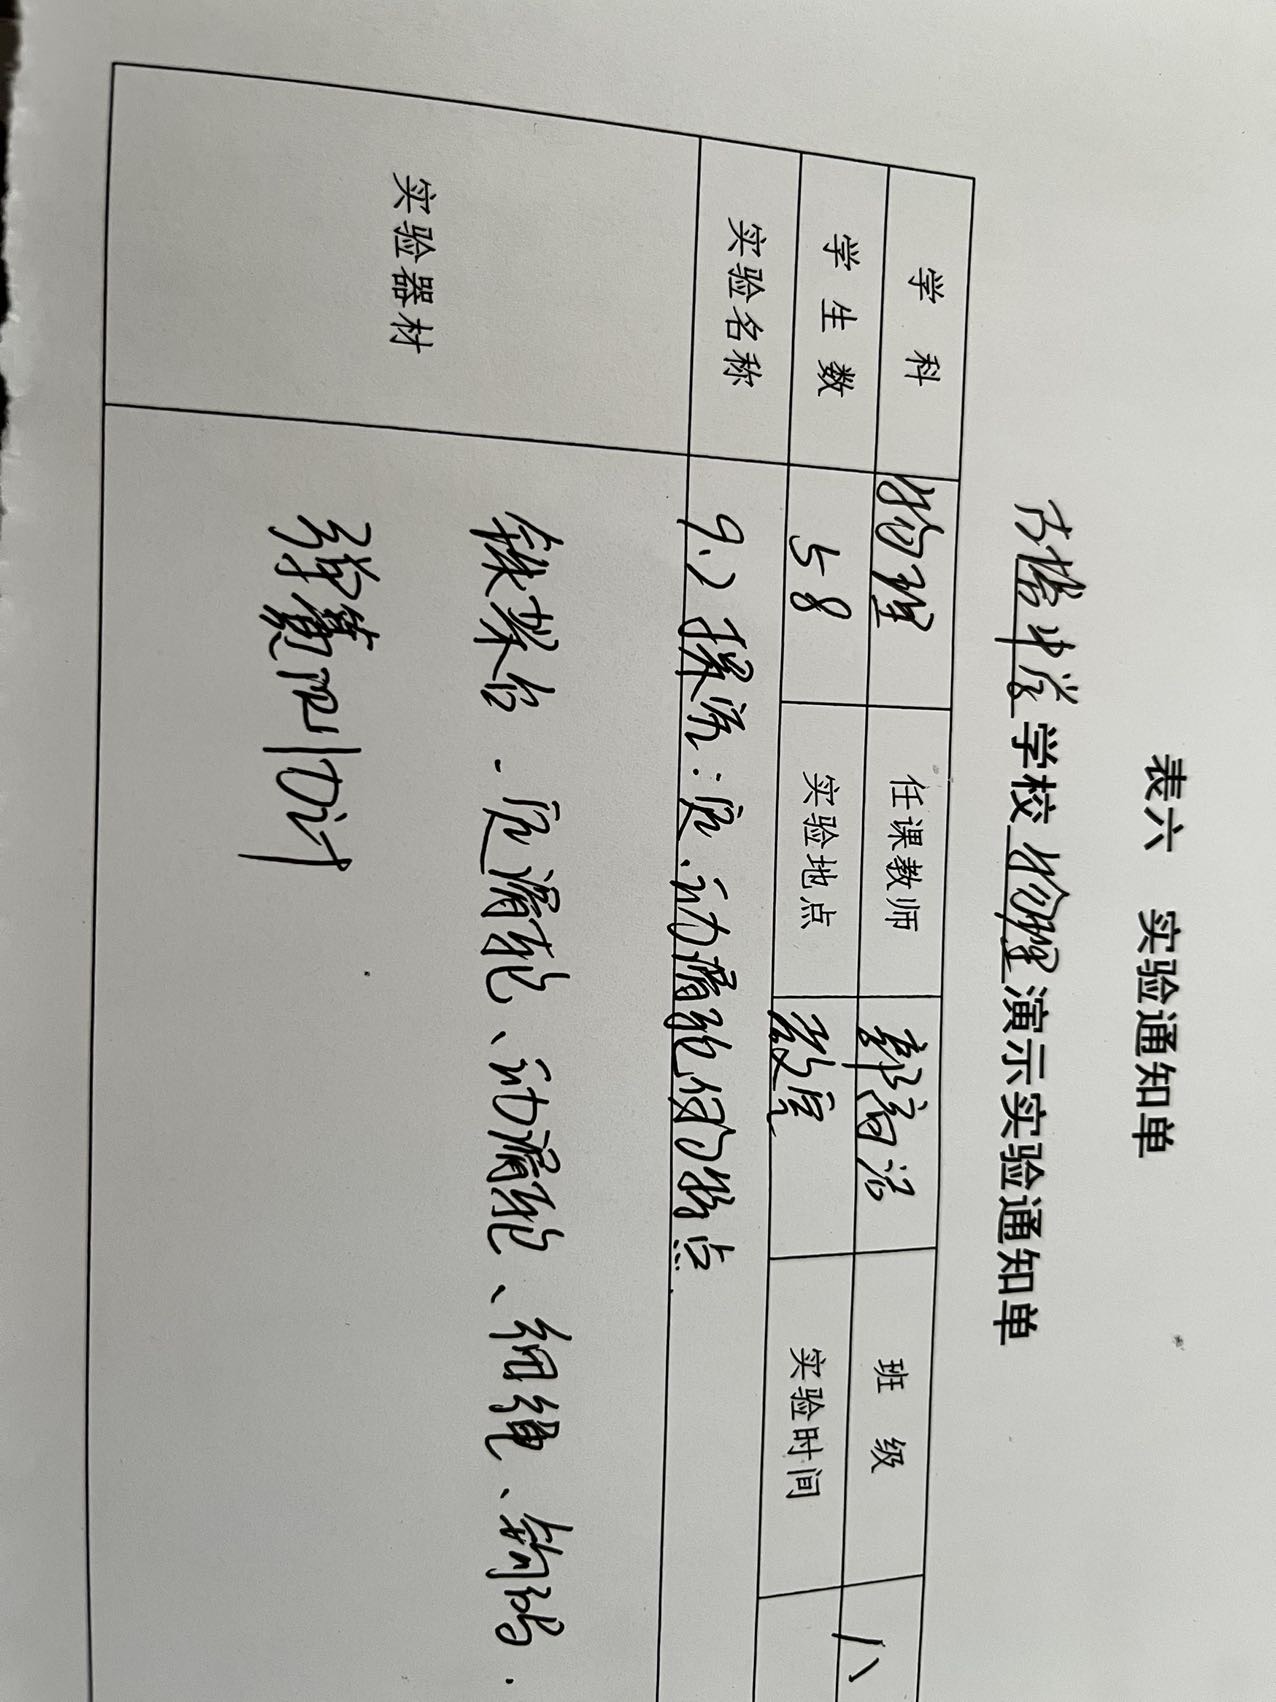 表六 实验通知单
古塔中学学校物理演示实验通知单
学科 物理 任课教师 班级 八
学生数 58 实验地点 教室 实验时间
实验名称 9.2 探究:定.动滑轮的特点
实验器材 铁架台.定滑轮、动滑轮、细绳、钩码.
弹簧测力计